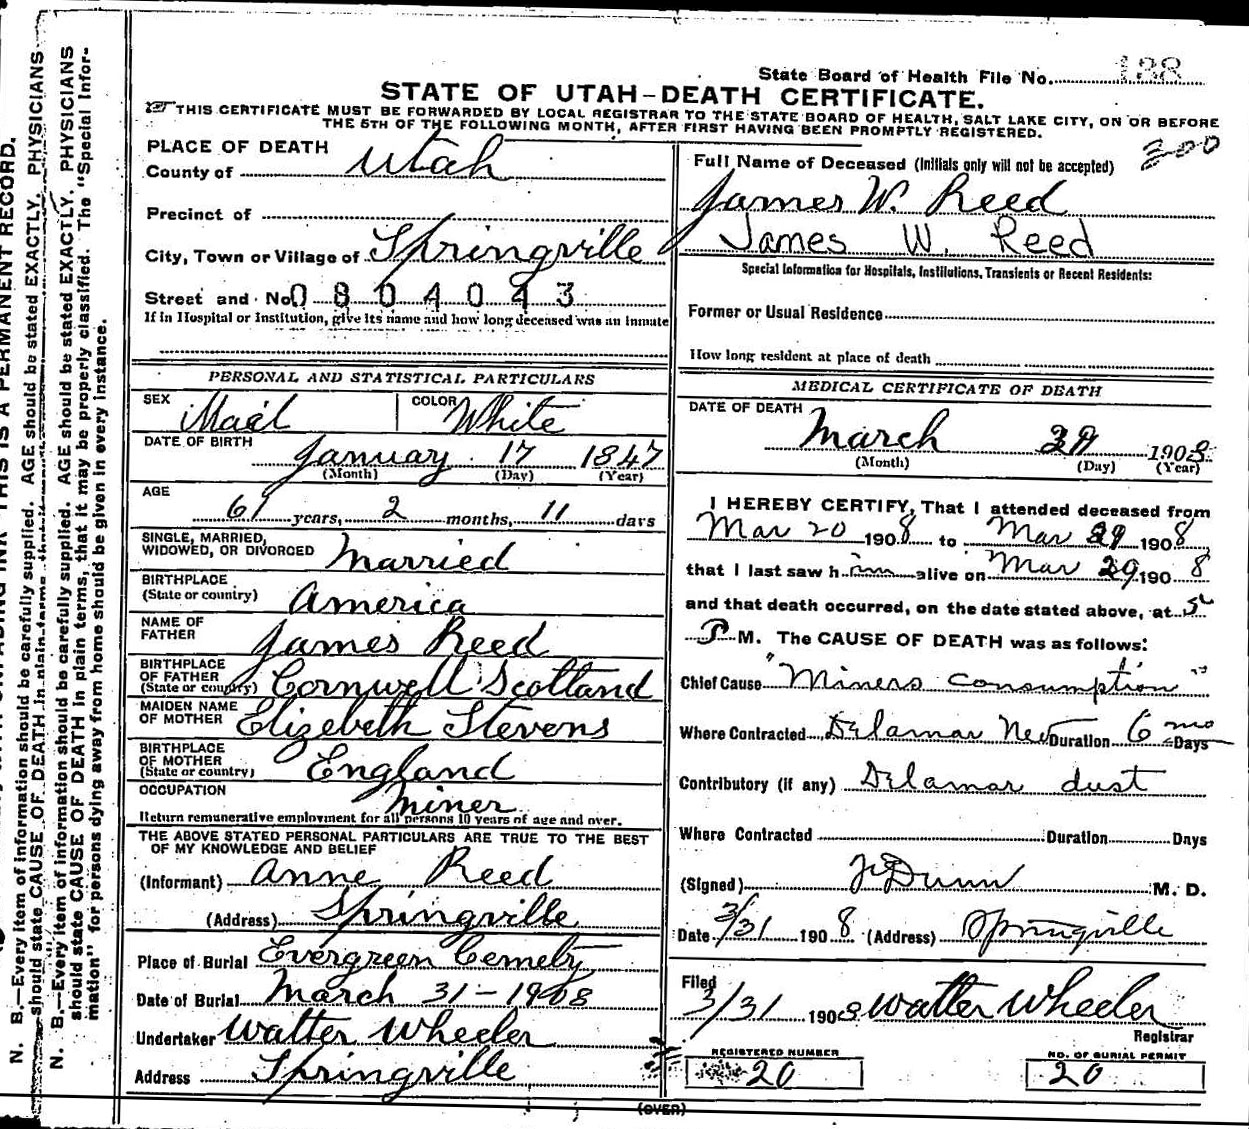 State Board of Health File No. 188
STATE OF UTAH-DEATH CERTIFICATE.
THIS CERTIFICATE MUST BE FORWARDED BY LOCAL REGISTRAR TO THE STATE BOARD OF HEALTH, SALT LAKE CITY, ON OR BEFORE
THE 5TH OF THE FOLLOWING MONTH, AFTER FIRST HAVING BEEN PROMPTLY REGISTERED.
200
PLACE OF DEATH
County of Utah
Precinct of
City, Town or Village of Springville
Street and No. 0 8 0 4 0 4 3
If in Hospital or Institution, give its name and how long deceased was an inmate
PERSONAL AND STATISTICAL PARTICULARS
SEX Mael COLOR White
DATE OF BIRTH
January 17 1847
(Month) (Day) (Year)
AGE
61 years, 2 months, 11 days
SINGLE, MARRIED,
WIDOWED, OR DIVORCED Married
BIRTHPLACE
(State or country) America
NAME OF
FATHER James Reed
BIRTHPLACE
OF FATHER
(State or country) Cornwell Scotland
MAIDEN NAME
OF MOTHER Elizebeth Stevens
BIRTHPLACE
OF MOTHER
(State or country) England
OCCUPATION
Miner
Return remunerative employment for all persons 10 years of age and over.
THE ABOVE STATED PERSONAL PARTICULARS ARE TRUE TO THE BEST
OF MY KNOWLEDGE AND BELIEF
(Informant) Anne Reed
(Address) Springville
Place of Burial Evergreen Cemety
Date of Burial March 31-1908
Undertaker Walter Wheeler
Address Springville
Full Name of Deceased (Initials only will not be accepted)
James W. Reed
James W. Reed
Special Information for Hospitals, Institutions, Transients or Recent Residents:
Former or Usual Residence
How long resident at place of death
MEDICAL CERTIFICATE OF DEATH
DATE OF DEATH
March 29 1908
(Month) (Day) (Year)
I HEREBY CERTIFY, That I attended deceased from
Mar 20 1908 to Mar 29 1908
that I last saw him alive on Mar 29, 1908
and that death occurred, on the date stated above, at 5
P M. The CAUSE OF DEATH was as follows:
Chief Cause "Miners consumption"
Where Contracted Delamar Nev Duration 6 mo Days
Contributory (if any) Delamar dust
Where Contracted Duration Days
(Signed) Dunn M. D.
Date 3/31 1908 (Address) Springville
Filed
3/31 1908 Walter Wheeler
Registrar
REGISTERED NUMBER
20
NO. OF BURIAL PERMIT
20
(OVER)
N. B.—Every item of information should be carefully supplied. AGE should be stated EXACTLY. PHYSICIANS
should state CAUSE OF DEATH in plain terms
N. B.—Every item of information should be carefully supplied. AGE should be stated EXACTLY. PHYSICIANS
should state CAUSE OF DEATH in plain terms, that it may be properly classified. The "Special Infor-
mation" for persons dying away from home should be given in every instance.
INK THIS IS A PERMANENT RECORD.